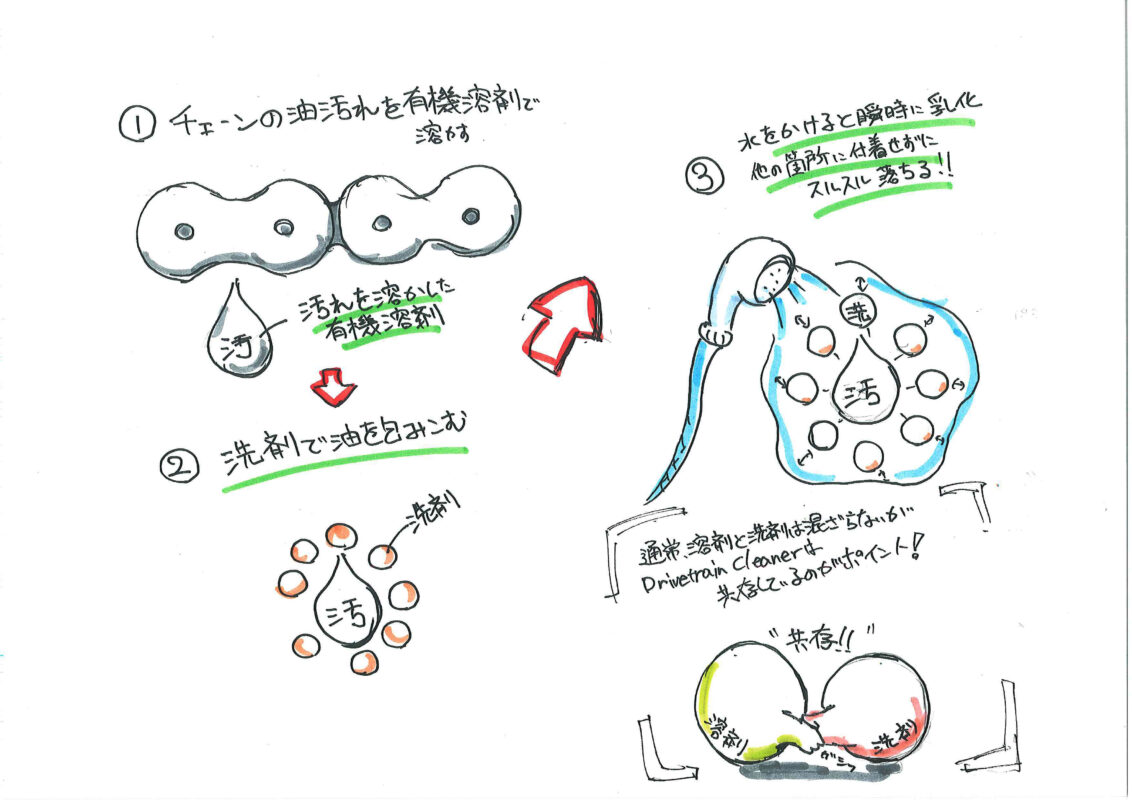 ① チェーンの油汚れを有機溶剤で
溶かす
汚れを溶かした
有機溶剤
汚
② 洗剤で油を包みこむ
洗剤
汚
③ 水をかけると瞬時に乳化
他の箇所に付着せずに
スルスル落ちる!!
洗
汚
通常、溶剤と洗剤は混ざらないが
Drivetrain Cleanerは
共存しているのがポイント!
"共存!!"
溶剤
洗剤